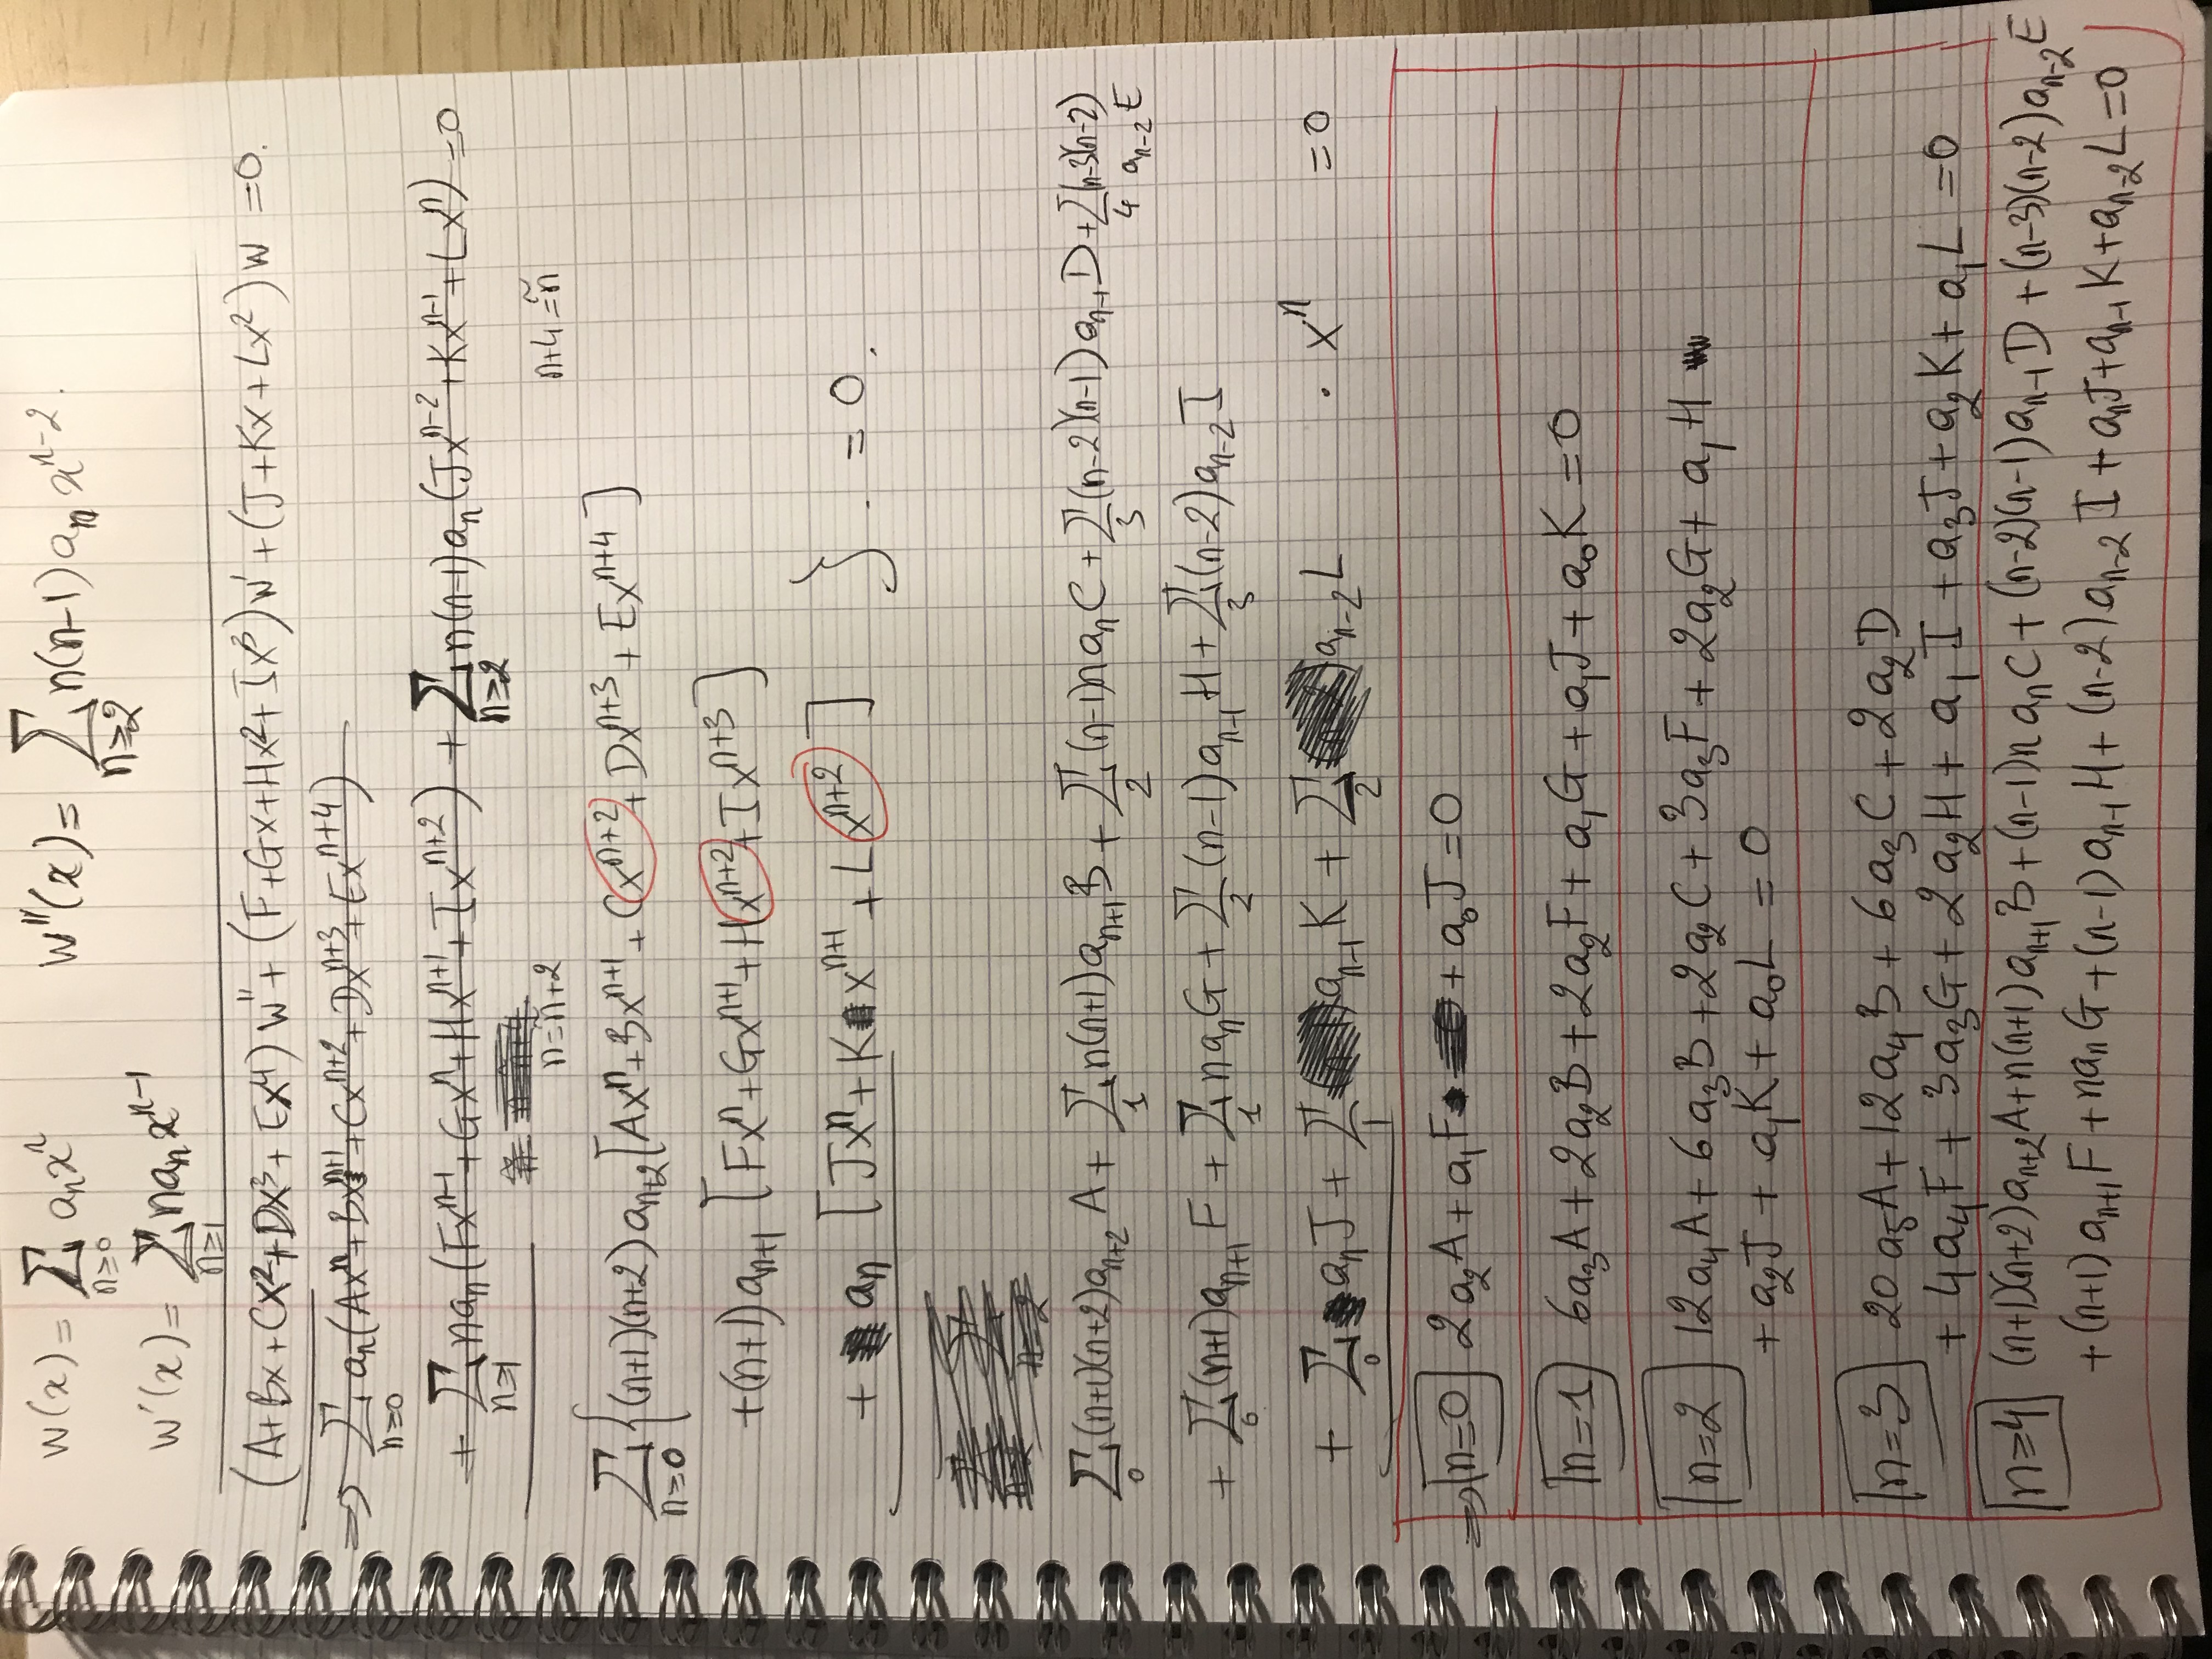 W(x) = ∑_{n≥0} a_n x^n    W''(x) = ∑_{n≥2} n(n-1) a_n x^{n-2}.
W'(x) = ∑_{n≥1} n a_n x^{n-1}
(A+Bx+Cx²+Dx³+Ex⁴) W'' + (F+Gx+Hx²+Ix³) W' + (J+Kx+Lx²) W = 0.
⇒ ∑_{n≥0} a_n (Ax^n + Bx^{n+1} + Cx^{n+2} + Dx^{n+3} + Ex^{n+4})
+ ∑_{n≥1} n a_n (Fx^{n-1} + Gx^n + Hx^{n+1} + Ix^{n+2}) + ∑_{n≥2} n(n-1) a_n (Jx^{n-2} + Kx^{n-1} + Lx^n) = 0
n = ñ+2    n+4 = ñ
∑_{n≥0} { (n+1)(n+2) a_{n+2} [Ax^n + Bx^{n+1} + Cx^{n+2} + Dx^{n+3} + Ex^{n+4}]
+ (n+1) a_{n+1} [Fx^n + Gx^{n+1} + Hx^{n+2} + Ix^{n+3}]
+ a_n [Jx^n + K x^{n+1} + Lx^{n+2}] } . = 0.
∑_0 (n+1)(n+2) a_{n+2} A + ∑_1 n(n+1) a_{n+1} B + ∑_2 (n-1)n a_n C + ∑_3 (n-2)(n-1) a_{n-1} D + ∑_4 (n-3)(n-2)
a_{n-2} E
+ ∑_0 (n+1) a_{n+1} F + ∑_1 n a_n G + ∑_2 (n-1) a_{n-1} H + ∑_3 (n-2) a_{n-2} I
+ ∑_0 a_n J + ∑_1 a_{n-1} K + ∑_2 a_{n-2} L · x^n = 0
⇒ n=0 2a_2A + a_1F + a_0J = 0
n=1 6a_3A + 2a_2B + 2a_2F + a_1G + a_1J + a_0K = 0
n=2 12a_4A + 6a_3B + 2a_2C + 3a_3F + 2a_2G + a_1H
+ a_2J + a_1K + a_0L = 0
n=3 20a_5A + 12a_4B + 6a_3C + 2a_2D
+ 4a_4F + 3a_3G + 2a_2H + a_1I + a_3J + a_2K + a_1L = 0
n≥4 (n+1)(n+2) a_{n+2} A + n(n+1) a_{n+1} B + (n-1)n a_n C + (n-2)(n-1) a_{n-1} D + (n-3)(n-2) a_{n-2} E
+ (n+1) a_{n+1} F + n a_n G + (n-1) a_{n-1} H + (n-2) a_{n-2} I + a_n J + a_{n-1} K + a_{n-2} L = 0